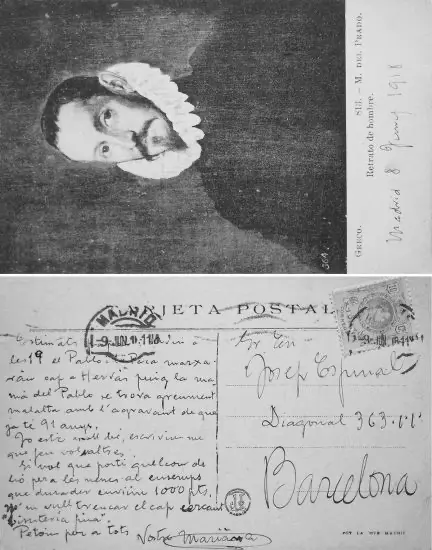 GRECO. 813. — M. DEL PRADO.
Retrato de hombre.
Madrid 8 Juny 1918
TARJETA POSTAL
MADRID
9 JUN
Estimats
les 19 el Pablo i la Paca marxa-
rán cap a Hervás puig la ma-
má del Pablo se trova greument
malalta amb l'agravant de que
ja té 91 anys.
Jo estic molt bé, escriviu-me
que feu vosaltres.
Si vol que porti quelcom de
bó per a les nenes al enserups
que durader enviin 1000 pts.
no'm vull trencar el cap cercant
"bisuteria fina".
Petons per a tots
Vostre Marian
Sr. En
Josep Espinal
Diagonal 363
Barcelona